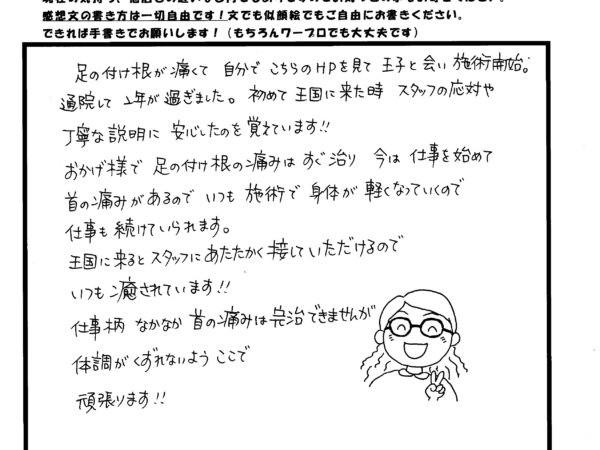 感想文の書き方は一切自由です！文でも似顔絵でもご自由にお書きください。
できれば手書きでお願いします！（もちろんワープロでも大丈夫です）
足の付け根が痛くて 自分で こちらのHPを見て 王子と会い 施術開始。
通院して 2年が過ぎました。初めて王国に来た時 スタッフの応対や
丁寧な説明に 安心したのを覚えています!!
おかげ様で 足の付け根の痛みは すぐ治り 今は 仕事を始めて
首の痛みがあるので いつも 施術で 身体が 軽くなっていくので
仕事も 続けていられます。
王国に来るとスタッフにあたたかく接していただけるので
いつも 癒されています!!
仕事柄 なかなか 首の痛みは完治できませんが
体調がくずれないよう ここで
頑張ります!!